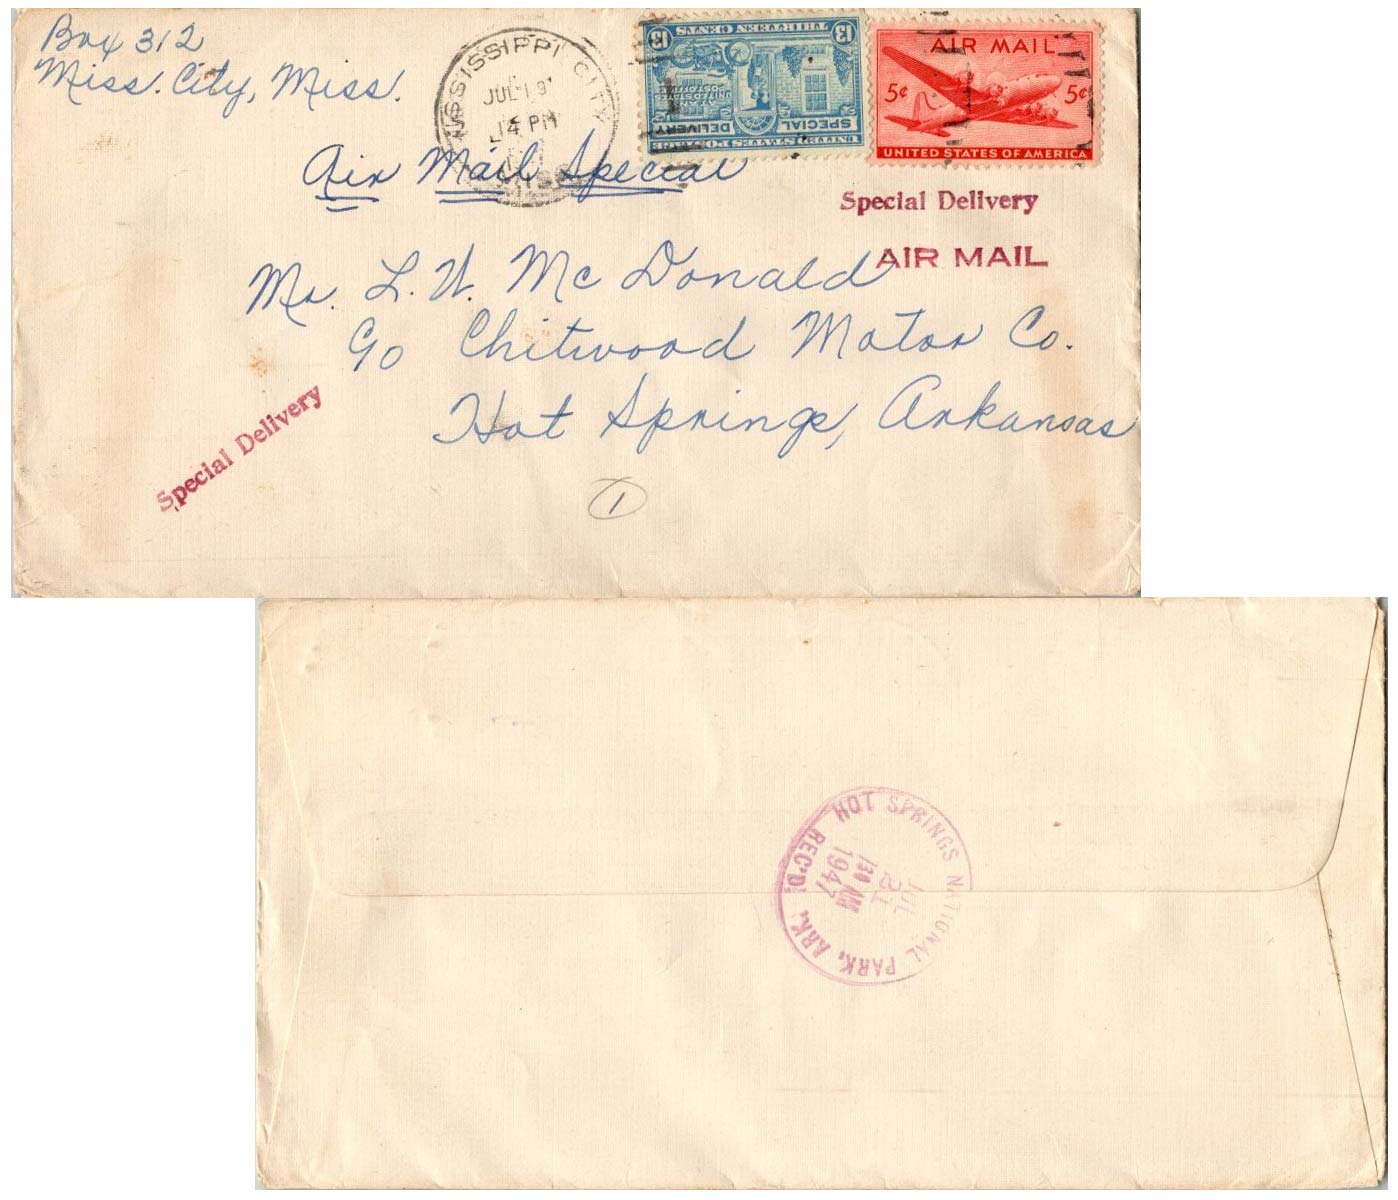 Box 312
Miss. City, Miss.
MISSISSIPPI CITY
JUL 19
4 PM
MISS.
UNITED STATES POSTAGE
SPECIAL
DELIVERY
AT ANY
UNITED STATES
POST OFFICE
13 THIRTEEN CENTS 13
AIR MAIL
5¢ 5¢
UNITED STATES OF AMERICA
Air Mail Special
Special Delivery
AIR MAIL
Mr. L. W. McDonald
c/o Chitwood Motor Co.
Hot Springs, Arkansas
Special Delivery
1
HOT SPRINGS NATIONAL PARK, ARK.
REC'D
JUL
21
7 30 AM
1947